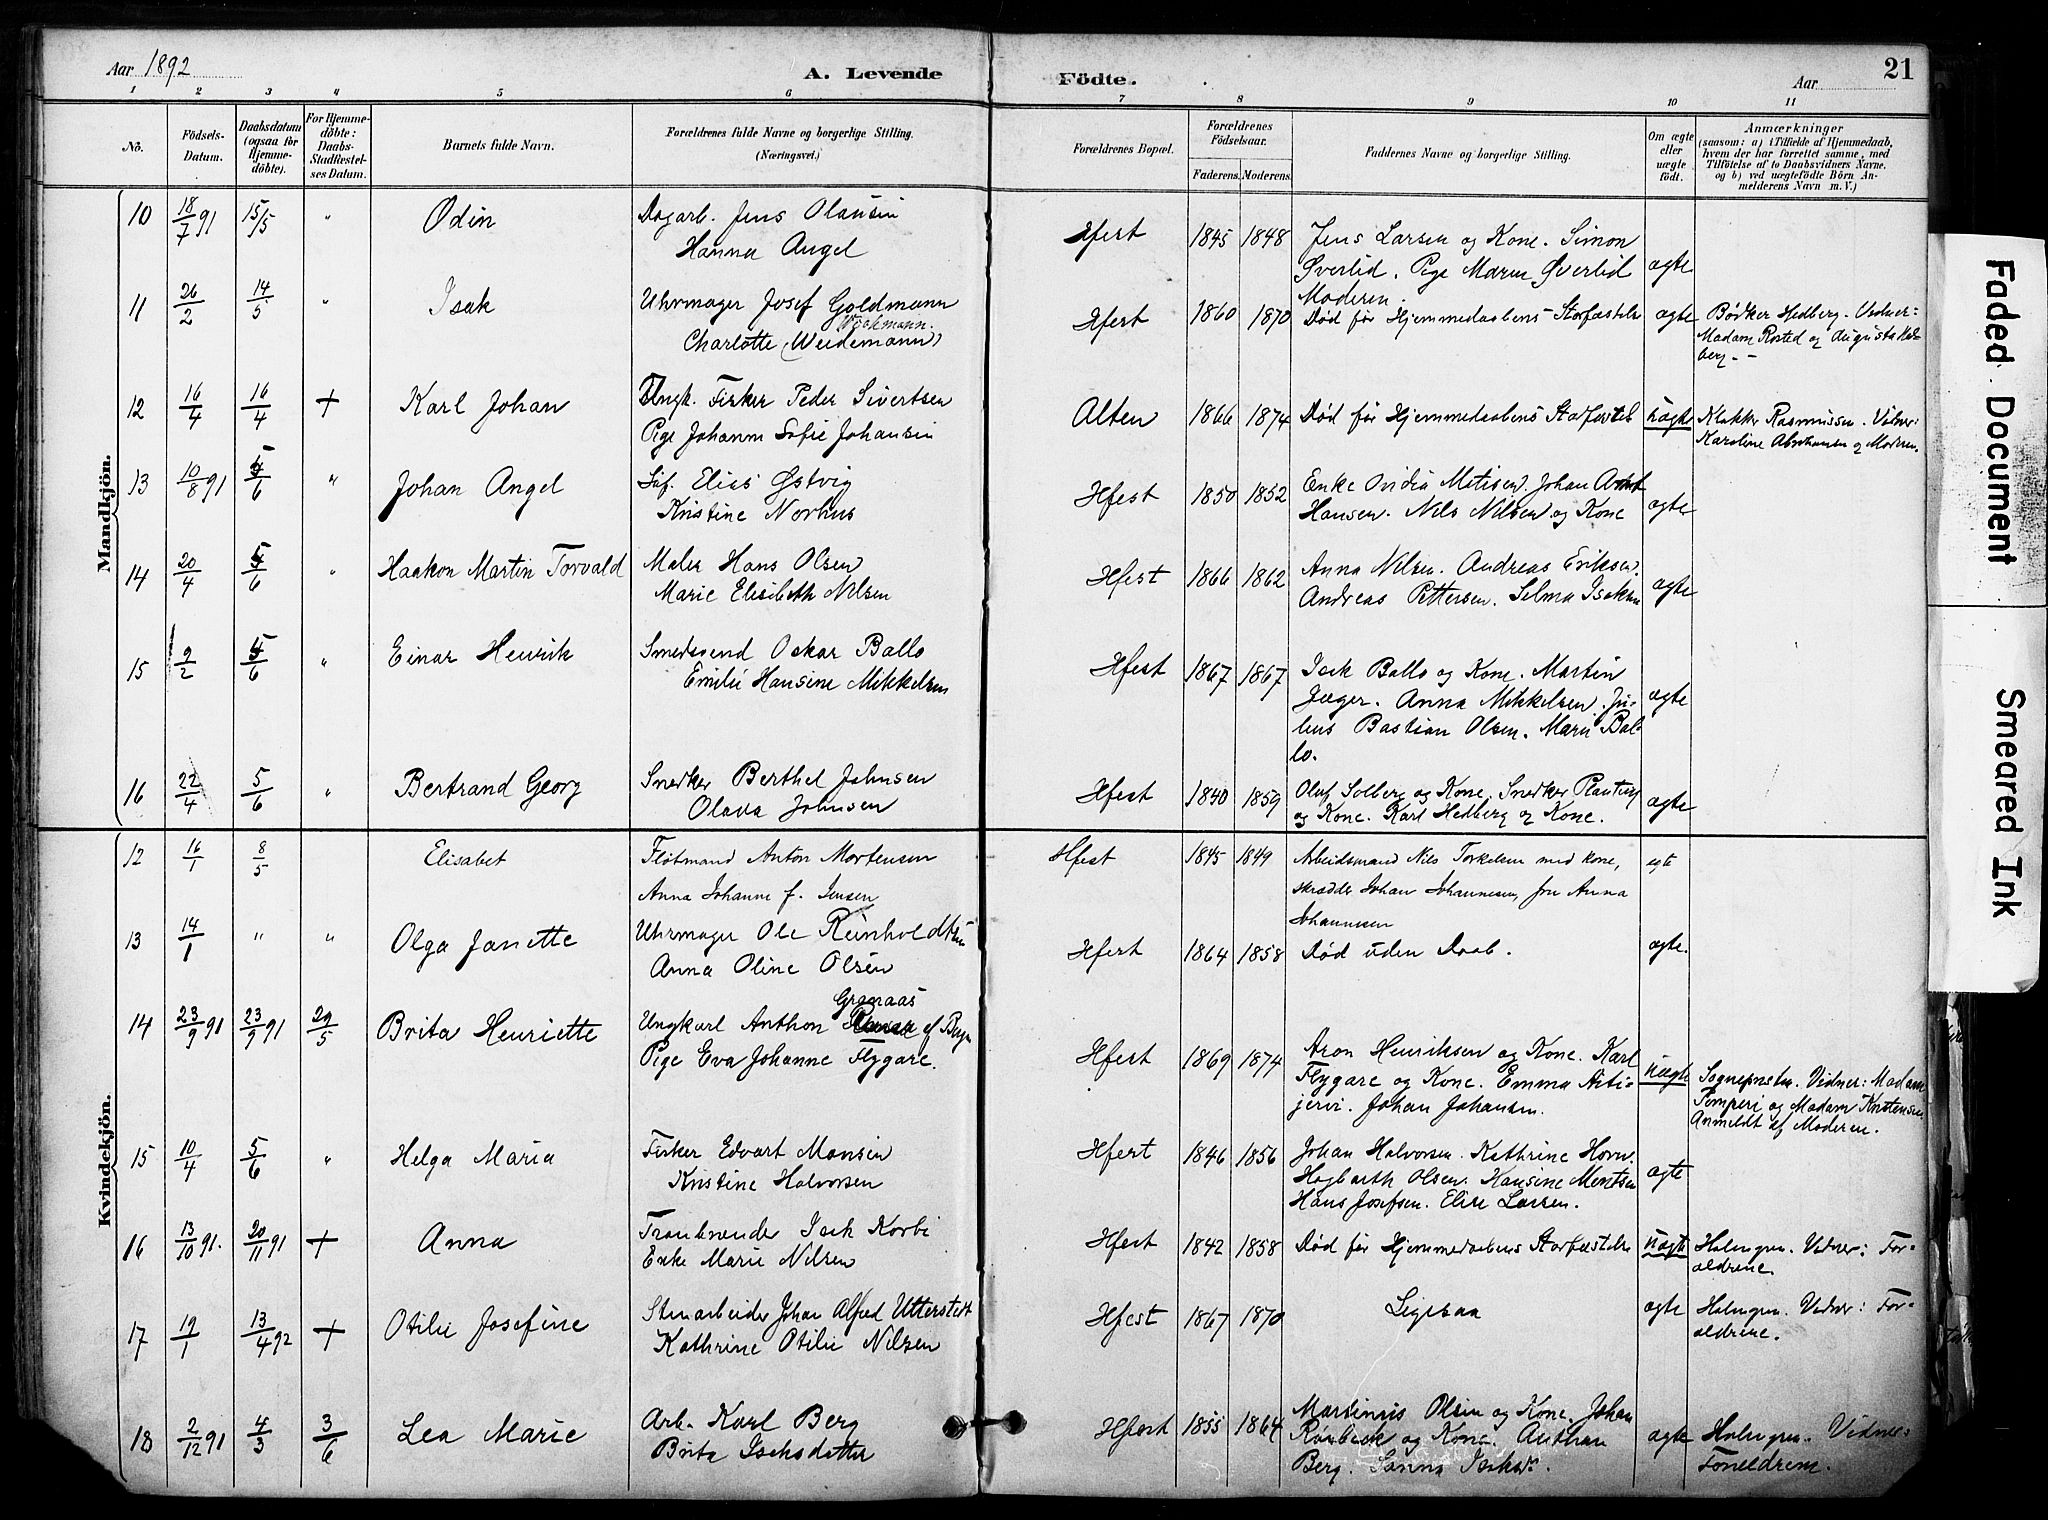 Aar 1892
A. Levende
Födte.
Aar
21
1 2 3 4 5 6 7 8 9 10 11
No.
Födsels-
Datum.
Daabsdatum
(ogsaa for
Hjemme-
döbte).
For Hjemme-
döbte:
Daabs-
Stadfæstel-
ses Datum.
Barnets fulde Navn.
Forældrenes fulde Navne og borgerlige Stilling.
(Næringsvei.)
Forældrenes Bopæl.
Forældrenes
Födselsaar.
Faderens. Moderens.
Faddernes Navne og borgerlige Stilling.
Om ægte
eller
uægte
födt.
Anmærkninger
(saasom: a) i Tilfælde af Hjemmedaab,
hvem der har forrettet samme, med
Tilföielse af to Daabsvidners Navne,
og b) ved uægtefödte Börn An-
melderens Navn m. V.)
Mandkjön.
10 18/7 91 15/5 " Odin Dagarb. Jens Olausen
Hanna Angel
Hfest 1845 1848 Jens Larsen og Kone. Simon
Øverlid. Pige Maren Øverlid
Moderen.
ægte
11 26/2 14/5 " Isak Uhrmager Josef Goldmann
Charlotte (Weidemann)
Hfest 1860 1870 Død før Hjemmedaabens Stadfæstelse ægte Bødker Hedberg. Vidner:
Madam Rosted og Augusta Hed-
berg. -
12 16/4 16/4 + Karl Johan Ungk. Fisker Peder Sivertsen
Pige Johanna Sofie Johansen
Alten 1866 1874 Død før Hjemmedaabens Stadfæstelse uægte Klokker Rasmussen. Vidner:
Karoline Abrahamsen og Moderen.
13 10/8 91 5/6 " Johan Angel Elias Østvig
Kristine Norhus
Hfest 1850 1852 Enke Ovidia Matisen. Johan Arndt
Hansen. Nils Nilsen og Kone
ægte
14 20/4 5/6 " Haakon Martin Torvald Maler Hans Olsen
Marie Elisabeth Nilsen
Hfest 1866 1862 Anna Nilsen. Andreas Eriksen.
Andreas Pettersen. Selma Isaksen
ægte
15 9/2 5/6 " Einar Henrik Smedsvend Oskar Ballo
Emilie Hansine Mikkelsen
Hfest 1867 1867 Isak Ballo og Kone. Martin
Jæger. Anna Mikkelsen. Ju-
lius Bastian Olsen. Marie Bal-
lo.
ægte
16 22/4 5/6 " Bertrand Georg Snedker Berthel Johnsen
Olava Johnsen
Hfest 1840 1859 Oluf Solberg og Kone. Snedker Planting
og Kone. Karl Hedberg og Kone.
ægte
Kvindekjön.
12 16/1 8/5 " Elisabet Fløtmand Anton Mortensen
Anna Johanne f. Jensen
Hfest 1845 1849 Arbeidsmand Nils Torkelsen med kone,
skrædder Johan Johannesen, fru Anna
Johannesen
egte
13 14/1 " " Olga Janette Uhrmager Ole Reinholdtsen
Anna Oline Olsen
Hfest 1864 1858 Død uden Daab. ægte.
14 23/9 91 23/9 91 29/5 Brita Henriette Ungkarl Anthon Granaas af Bergen
Pige Eva Johanne Flygare.
Hfest 1869 1874 Aron Henriksen og Kone. Karl
Flygare og Kone. Emma Niti-
jervi. Johan Johansen.
uægte Sognepresten. Vidner: Madam
Pemperi og Madam Kristensen.
Anmeldt af Moderen.
15 10/4 5/6 " Helga Maria Fisker Edvart Monsen
Kristine Halvorsen
Hfest 1846 1856 Johan Halvorsen. Kathrine Horn.
Hagbarth Olsen. Hansine Mentsen
Hans Josefsen. Elise Larsen.
ægte
16 13/10 91. 20/11 91 + Anna Tranbrænder Isak Korbi
Enke Marie Nilsen
Hfest 1842 1858 Død før Hjemmedaabens Stadfæstelse uægte Holmgren. Vidner: For-
ældrene.
17 19/1 13/4 92 + Otilie Josefine Stenarbeider Johan Alfred Utterstedt
Kathrine Otilie Nilsen
Hfest 1867 1870 Ligesaa ægte Holmgren. Vidner: For-
ældrene.
18 2/12 91 4/3 3/6 Lea Marie Arb. Karl Berg
Brita Isaksdatter
Hfest 1855 1864 Martinus Olsen og Kone. Johan
Rønbeck og Kone. Anthon
Berg. Sanna Isaksdr.
ægte Holmgren. Vidner:
Forældrene.
Faded Document
Smeared Ink